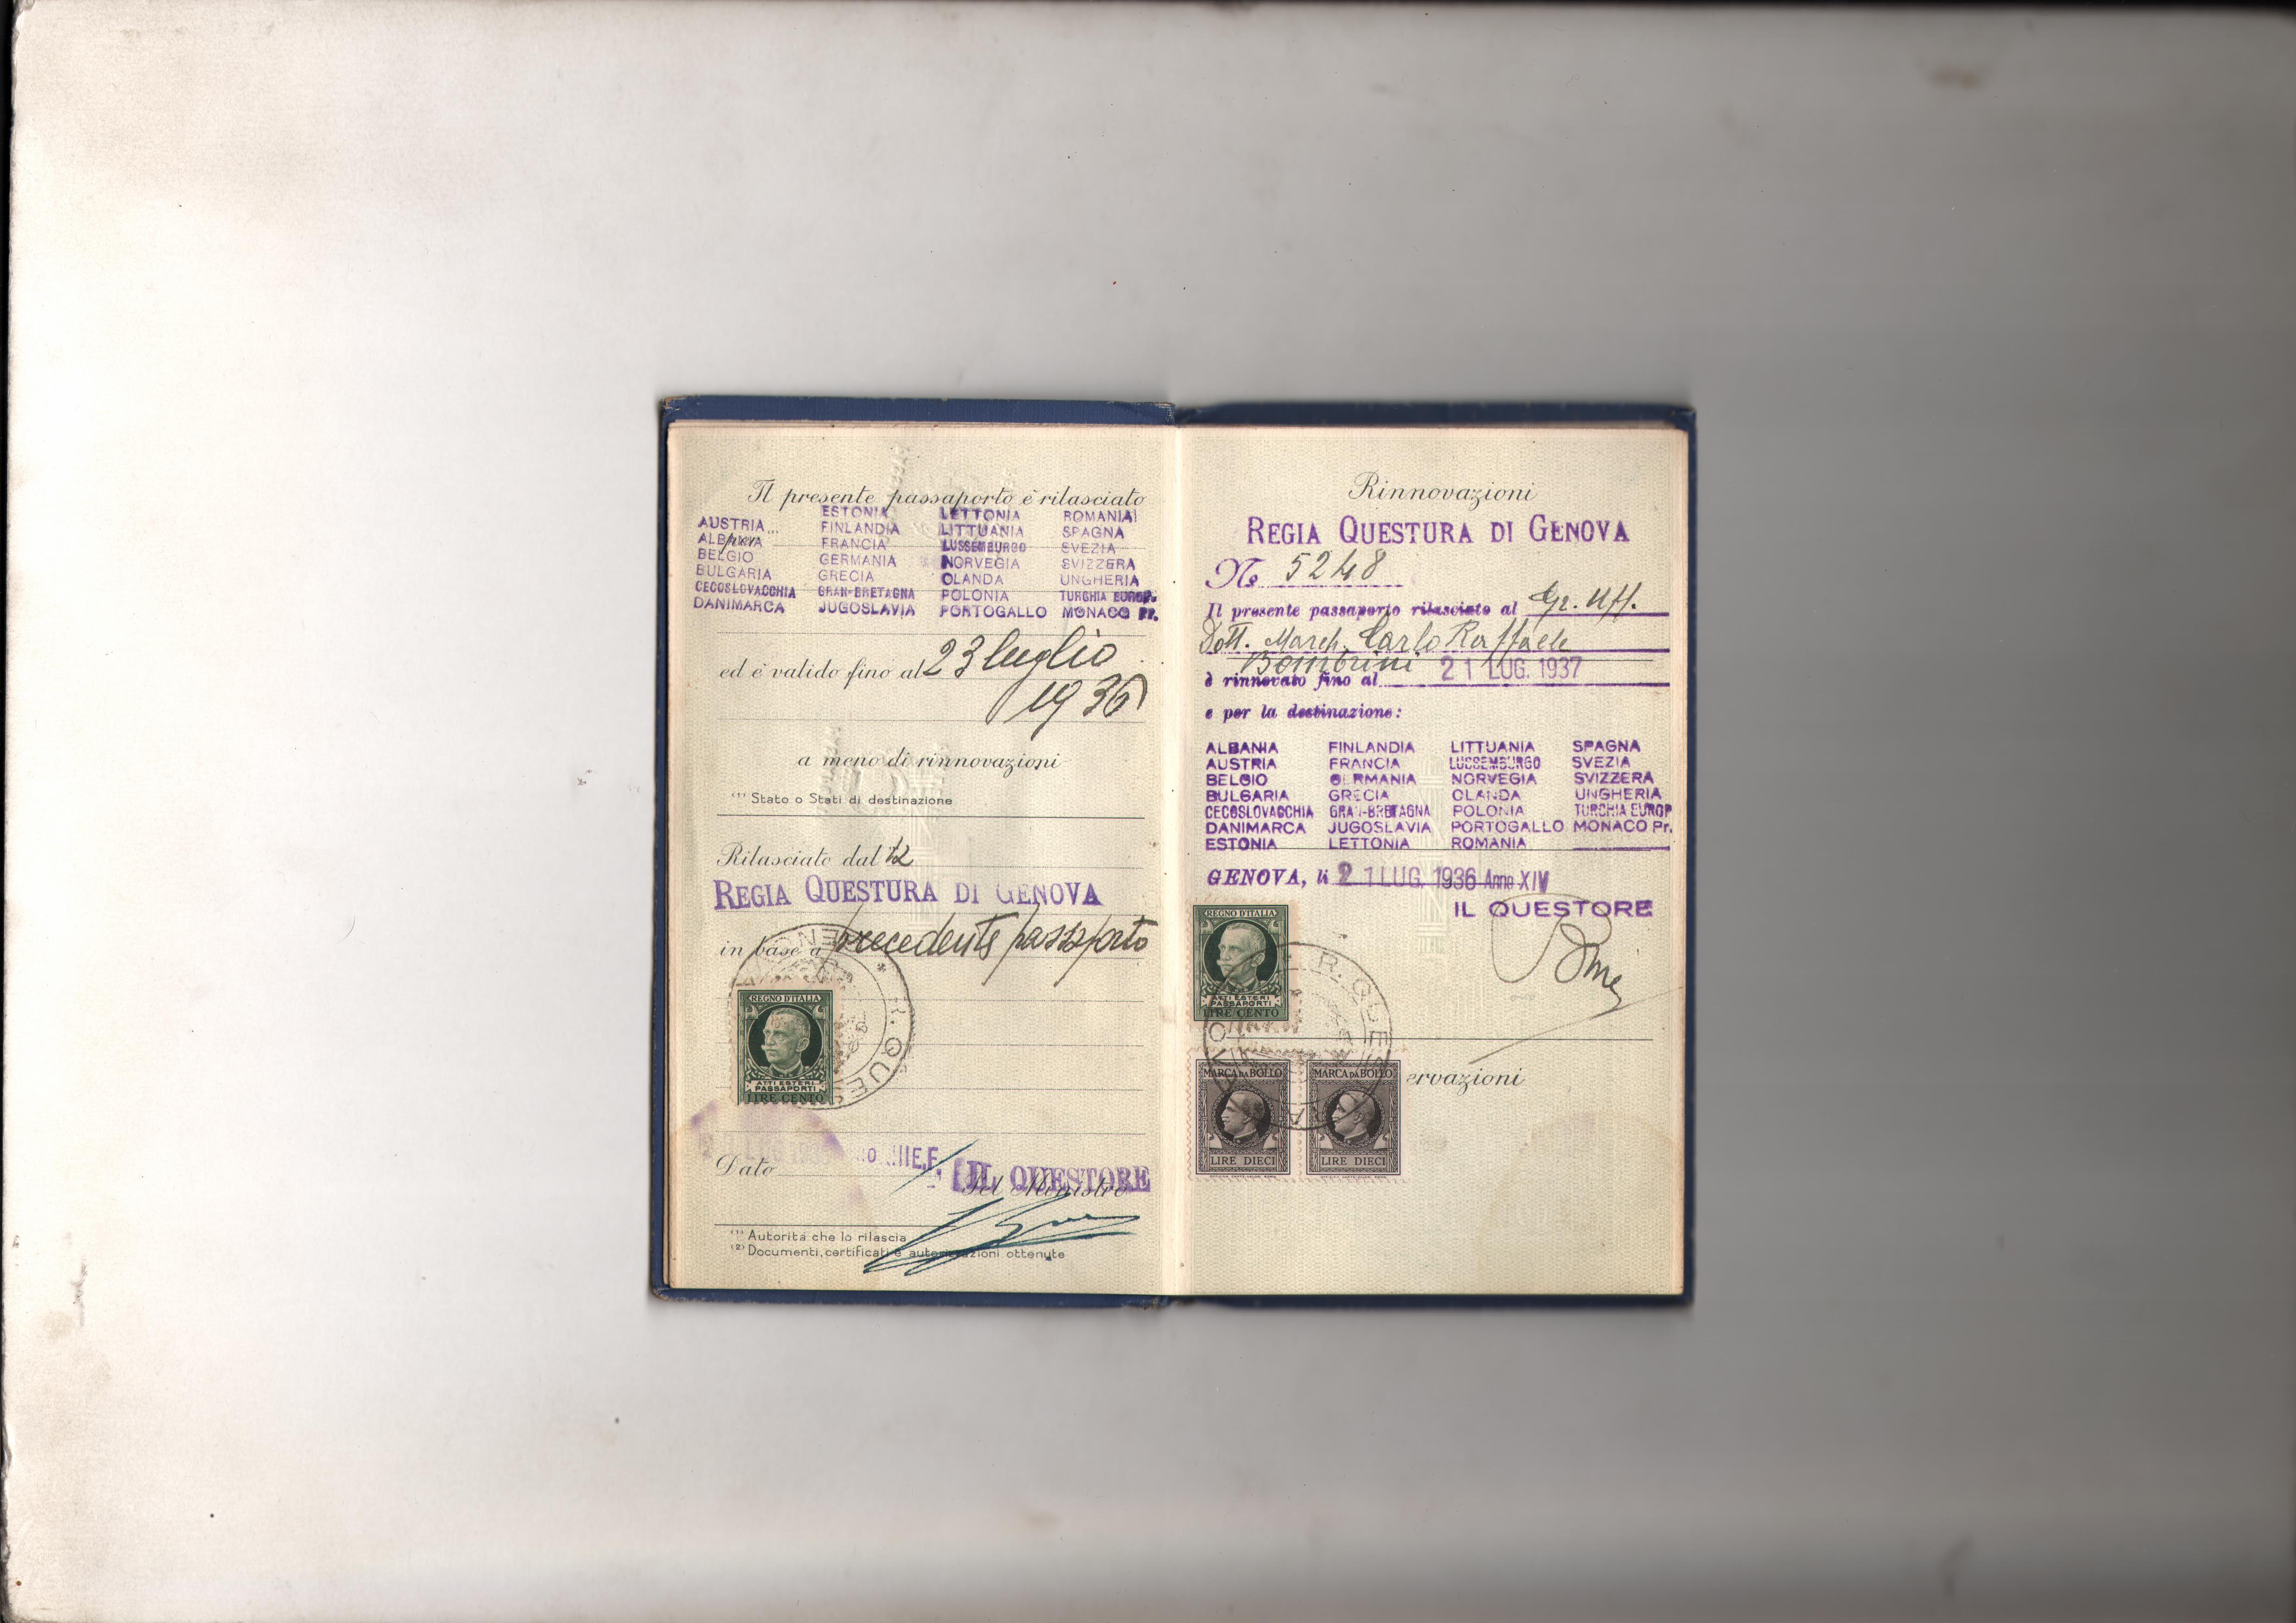 Il presente passaporto è rilasciato
per
AUSTRIA ESTONIA LETTONIA ROMANIA
ALBANIA FINLANDIA LITTUANIA SPAGNA
BELGIO FRANCIA LUSSEMBURGO SVEZIA
BULGARIA GERMANIA NORVEGIA SVIZZERA
CECOSLOVACCHIA GRECIA OLANDA UNGHERIA
DANIMARCA GRAN-BRETAGNA POLONIA TURCHIA EUROP.
JUGOSLAVIA PORTOGALLO MONACO Pr.
ed è valido fino al 23 luglio
1936
a meno di rinnovazioni
(1) Stato o Stati di destinazione
Rilasciato dal la
REGIA QUESTURA DI GENOVA
in base a precedente passaporto
R. QUES
REGNO D'ITALIA
ATTI ESTERI
PASSAPORTI
LIRE CENTO
Dato
IL QUESTORE
Del Ministro
(1) Autorità che lo rilascia
(2) Documenti, certificati e autorizzazioni ottenute
Rinnovazioni
REGIA QUESTURA DI GENOVA
No 5248
Il presente passaporto rilasciato al Gr. Uff.
Dott. March. Carlo Raffaele
Bombrini
è rinnovato fino al 21 LUG. 1937
e per la destinazione:
ALBANIA FINLANDIA LITTUANIA SPAGNA
AUSTRIA FRANCIA LUSSEMBURGO SVEZIA
BELGIO GERMANIA NORVEGIA SVIZZERA
BULGARIA GRECIA OLANDA UNGHERIA
CECOSLOVACCHIA GRAN-BRETAGNA POLONIA TURCHIA EUROP
DANIMARCA JUGOSLAVIA PORTOGALLO MONACO Pr.
ESTONIA LETTONIA ROMANIA
GENOVA, li 21 LUG. 1936 Anno XIV
IL QUESTORE
REGNO D'ITALIA
ATTI ESTERI
PASSAPORTI
LIRE CENTO
R. QUES
MARCA DA BOLLO MARCA DA BOLLO
LIRE DIECI LIRE DIECI
ervazioni